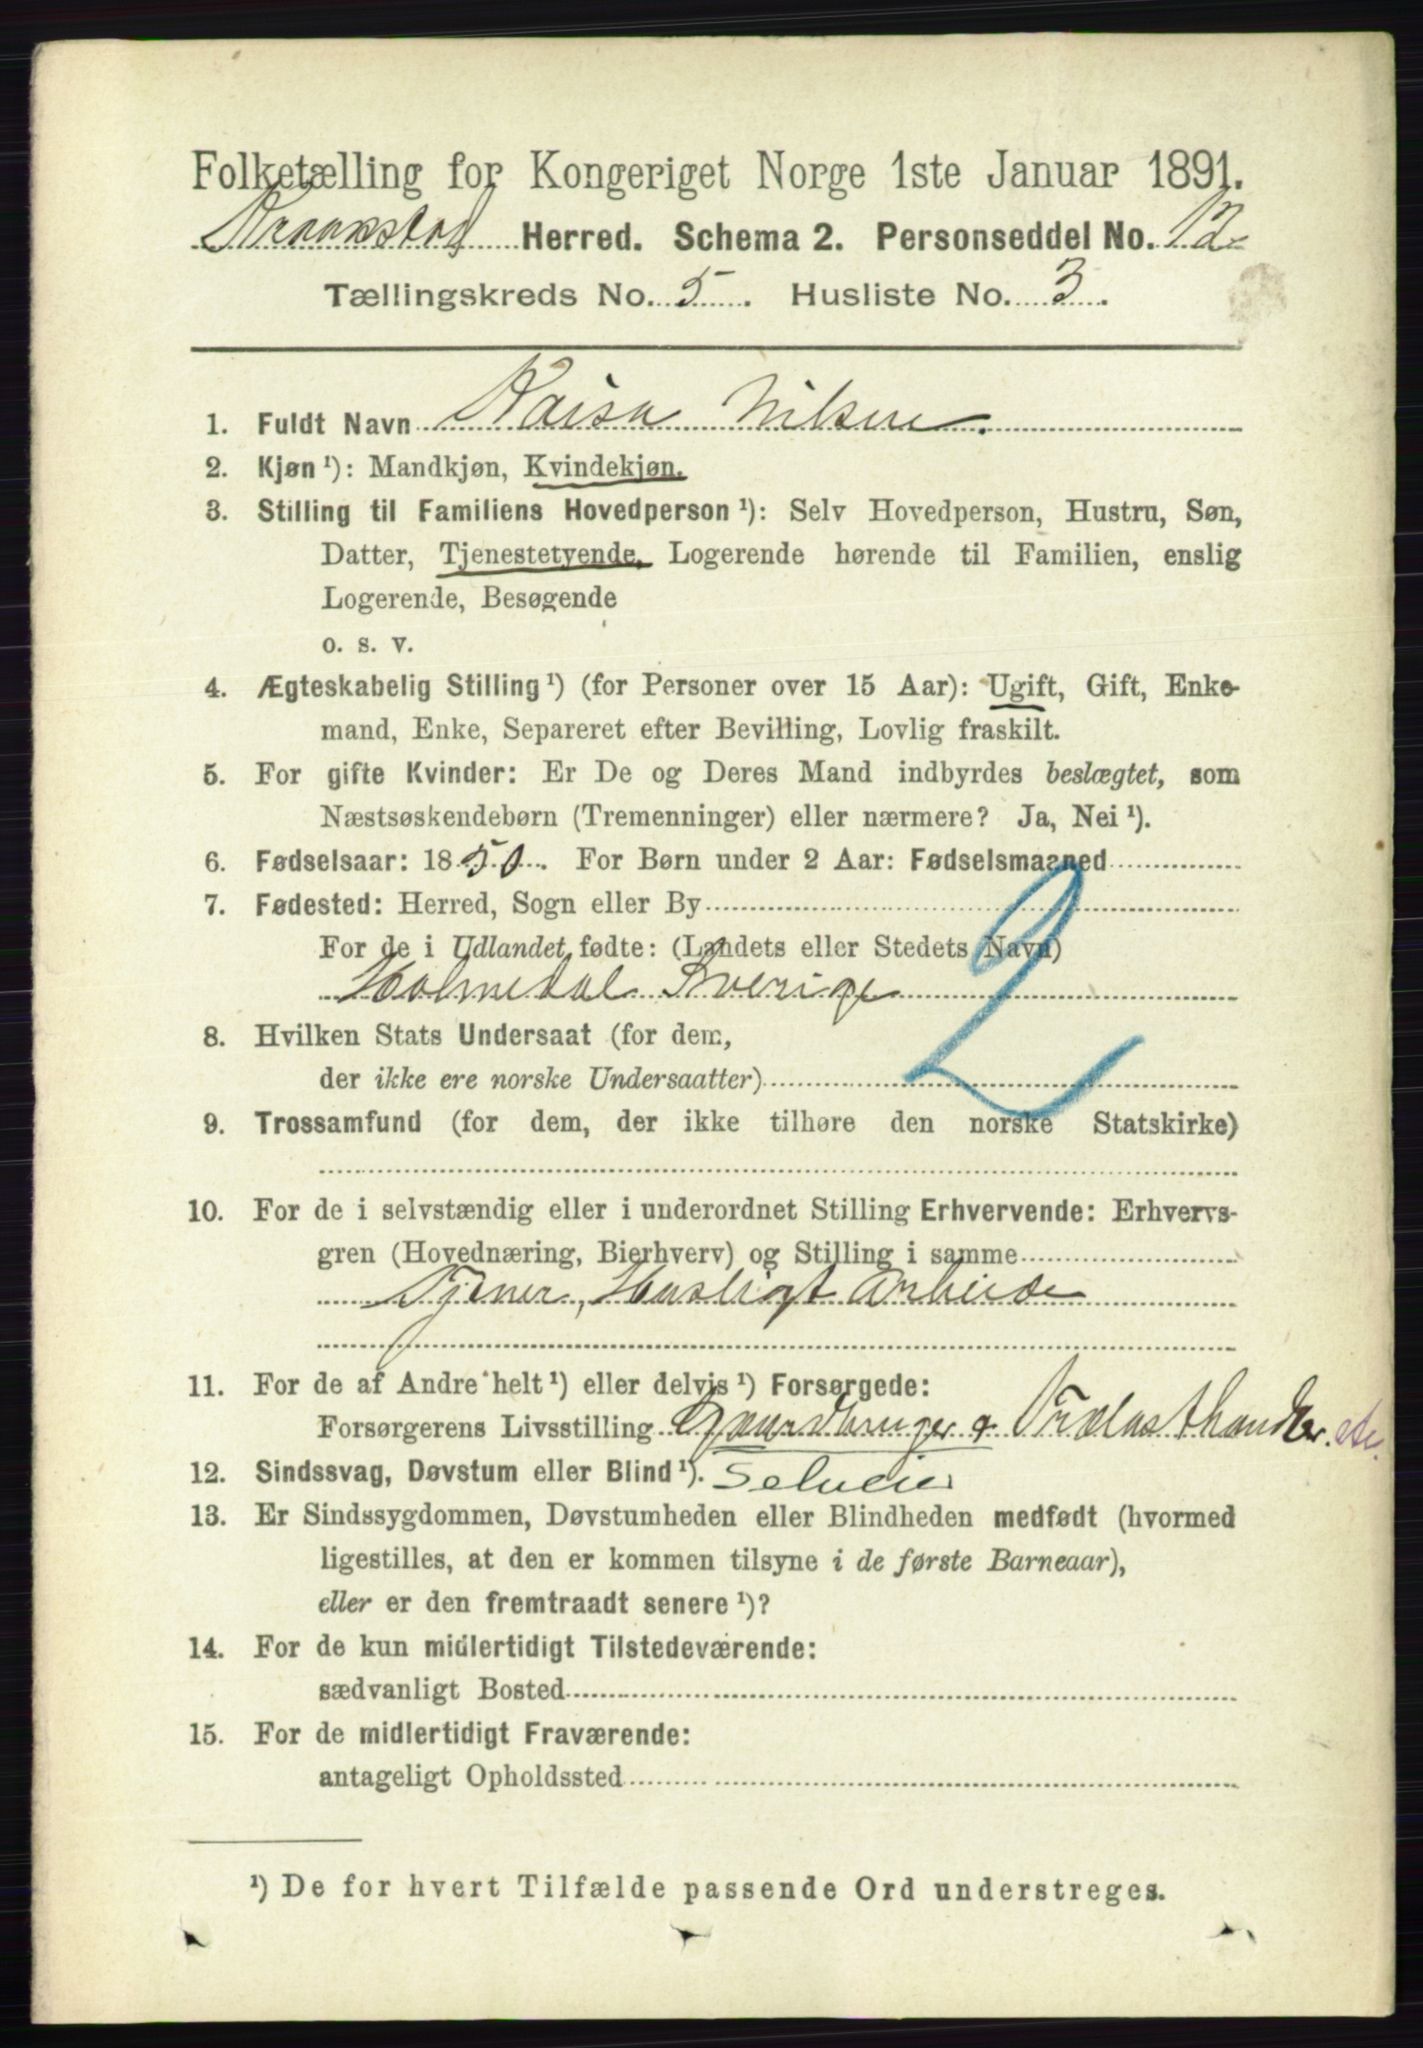 Folketælling for Kongeriget Norge 1ste Januar 1891.
Kraakstad Herred. Schema 2. Personseddel No. 12
Tællingskreds No. 5. Husliste No. 3.
1. Fuldt Navn Kaisa Nilsen.
2. Kjøn ¹): Mandkjøn, Kvindekjøn.
3. Stilling til Familiens Hovedperson ¹): Selv Hovedperson, Hustru, Søn,
Datter, Tjenestetyende, Logerende hørende til Familien, enslig
Logerende, Besøgende
o. s. v.
4. Ægteskabelig Stilling ¹) (for Personer over 15 Aar): Ugift, Gift, Enke-
mand, Enke, Separeret efter Bevilling, Lovlig fraskilt.
5. For gifte Kvinder: Er De og Deres Mand indbyrdes beslægtet, som
Næstsøskendebørn (Tremenninger) eller nærmere? Ja, Nei ¹).
6. Fødselsaar: 1850. For Børn under 2 Aar: Fødselsmaaned
7. Fødested: Herred, Sogn eller By
For de i Udlandet fødte: (Landets eller Stedets Navn)
Holmedal Sverige
2
8. Hvilken Stats Undersaat (for dem,
der ikke ere norske Undersaatter)
9. Trossamfund (for dem, der ikke tilhøre den norske Statskirke)
10. For de i selvstændig eller i underordnet Stilling Erhvervende: Erhvervs-
gren (Hovednæring, Bierhverv) og Stilling i samme
Tjener, Husligt Arbeide
11. For de af Andre helt ¹) eller delvis ¹) Forsørgede:
Forsørgerens Livsstilling Gaardbruger & Trælasthandler. etc.
12. Sindssvag, Døvstum eller Blind ¹). Selveier
13. Er Sindssygdommen, Døvstumheden eller Blindheden medfødt (hvormed
ligestilles, at den er kommen tilsyne i de første Barneaar),
eller er den fremtraadt senere ¹)?
14. For de kun midlertidigt Tilstedeværende:
sædvanligt Bosted
15. For de midlertidigt Fraværende:
antageligt Opholdssted
¹) De for hvert Tilfælde passende Ord understreges.